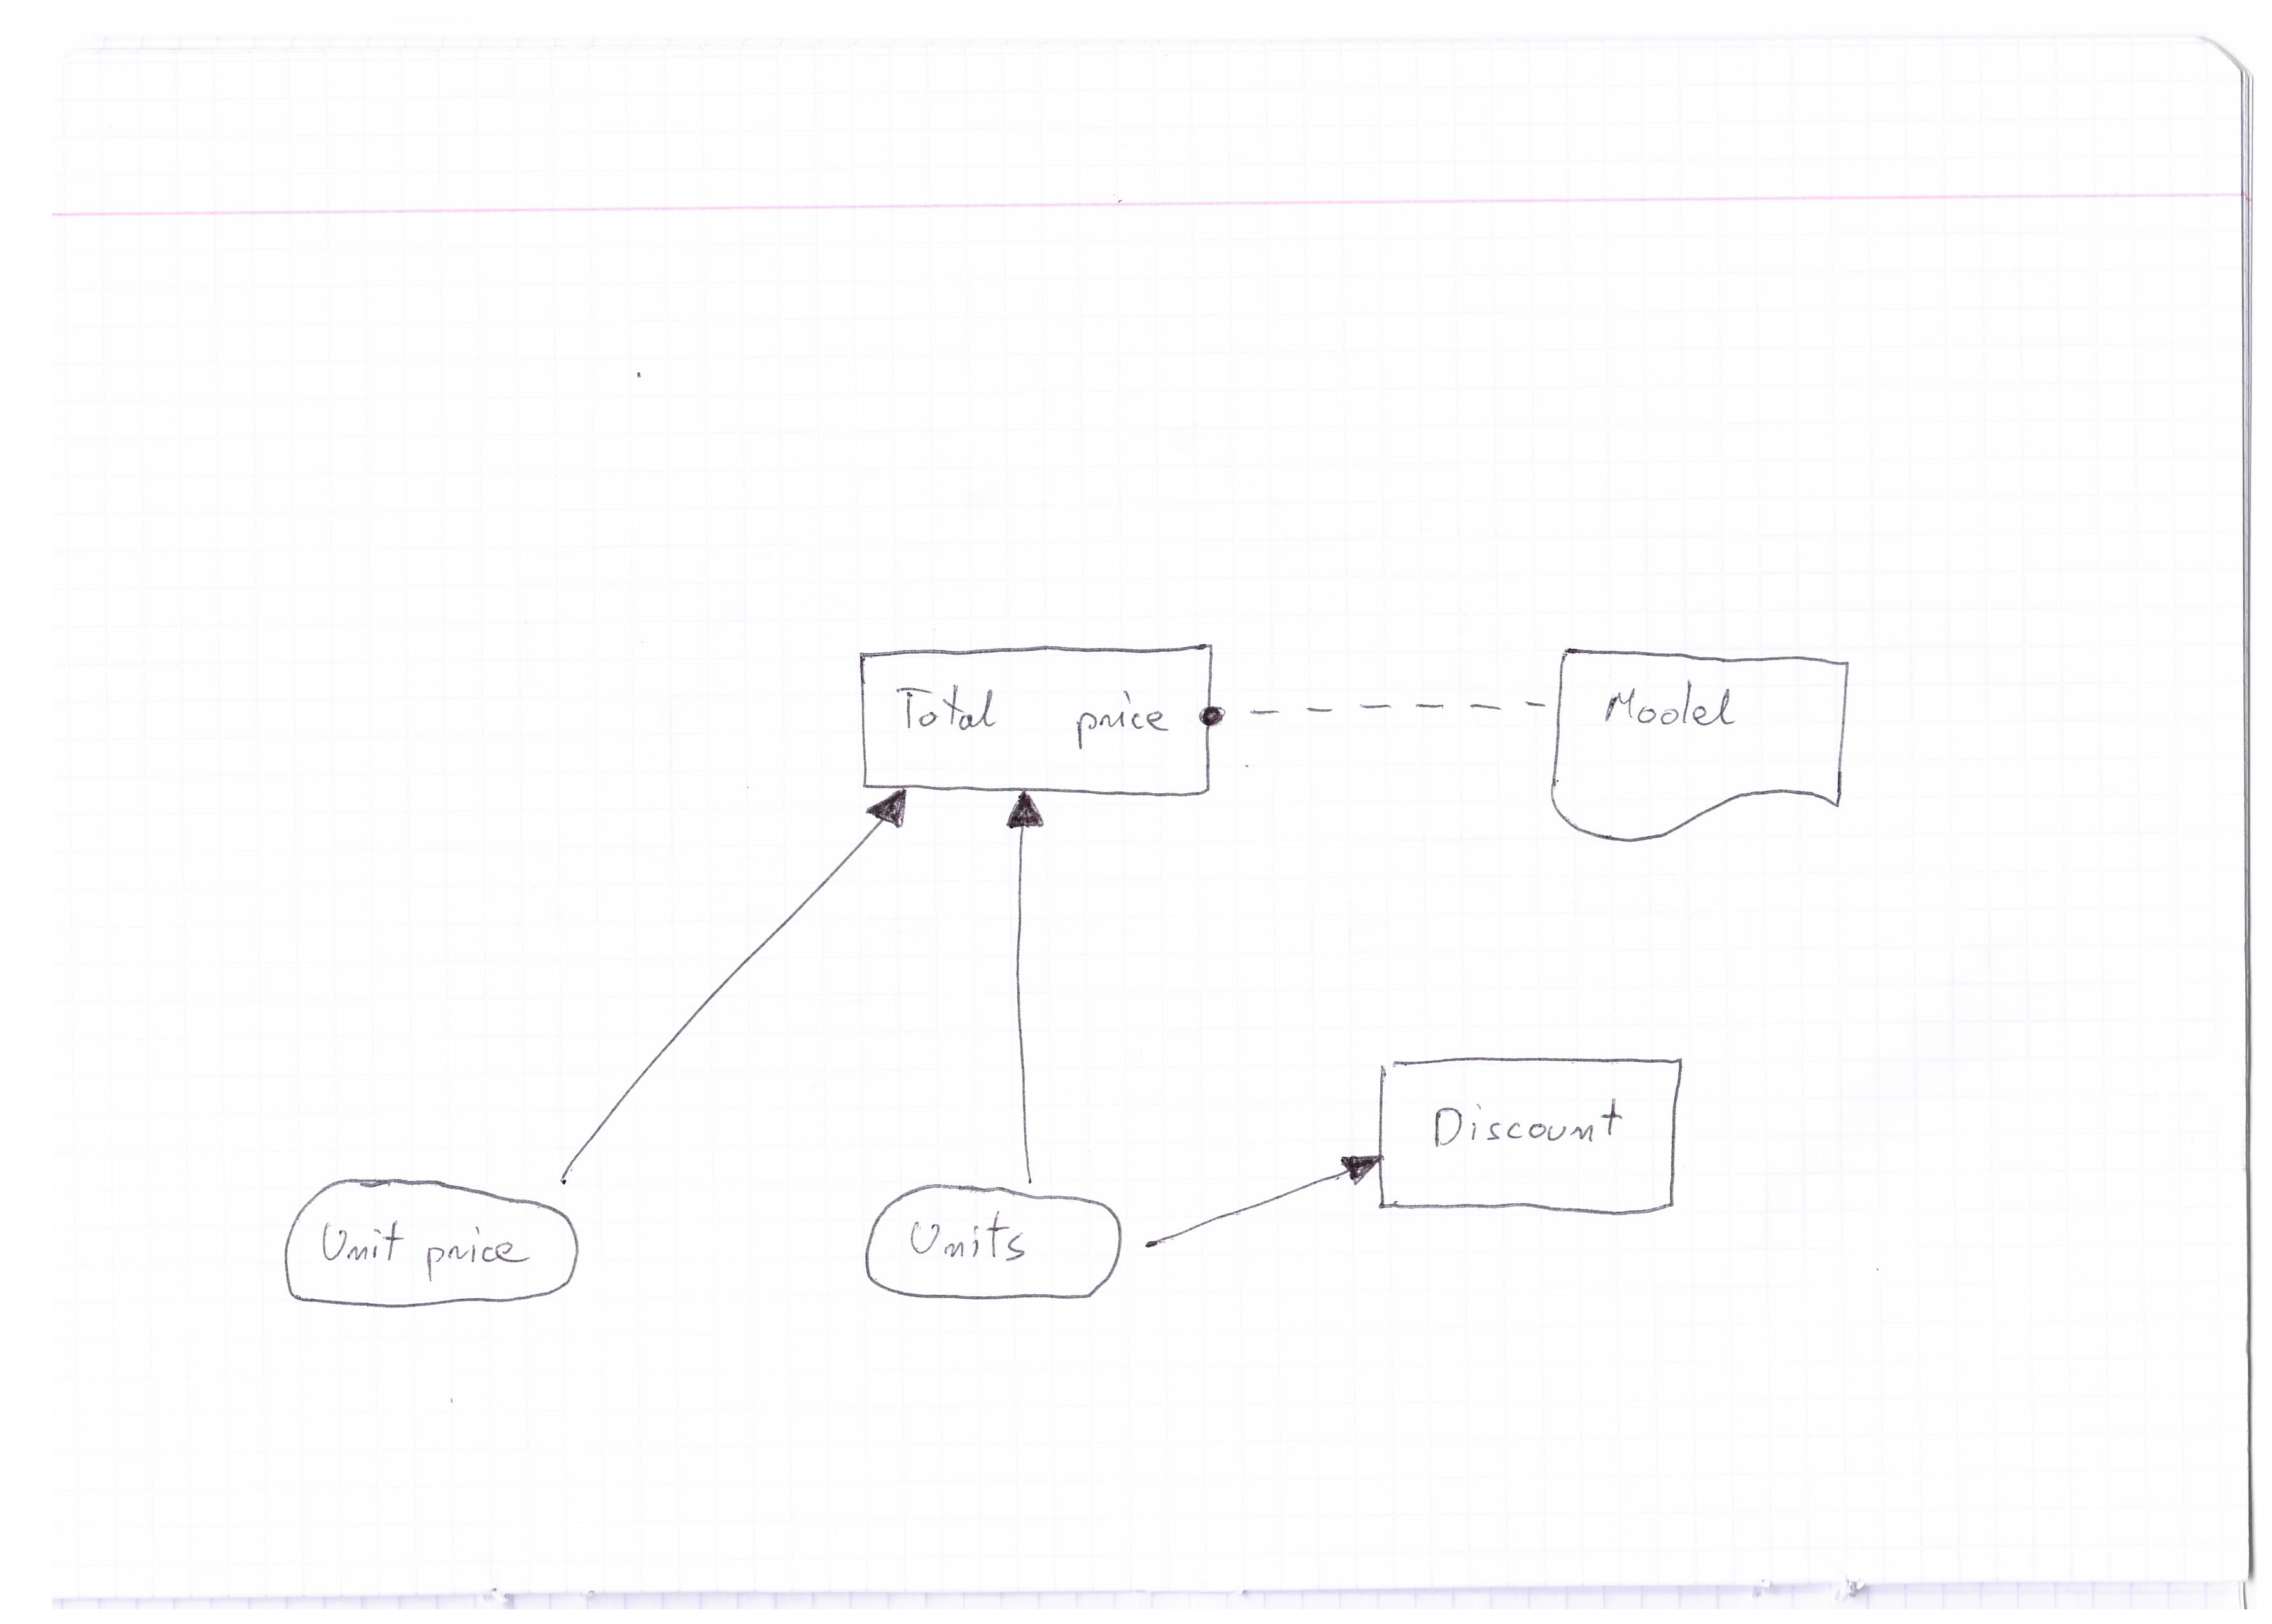 Total price
Model
Discount
Unit price
Units